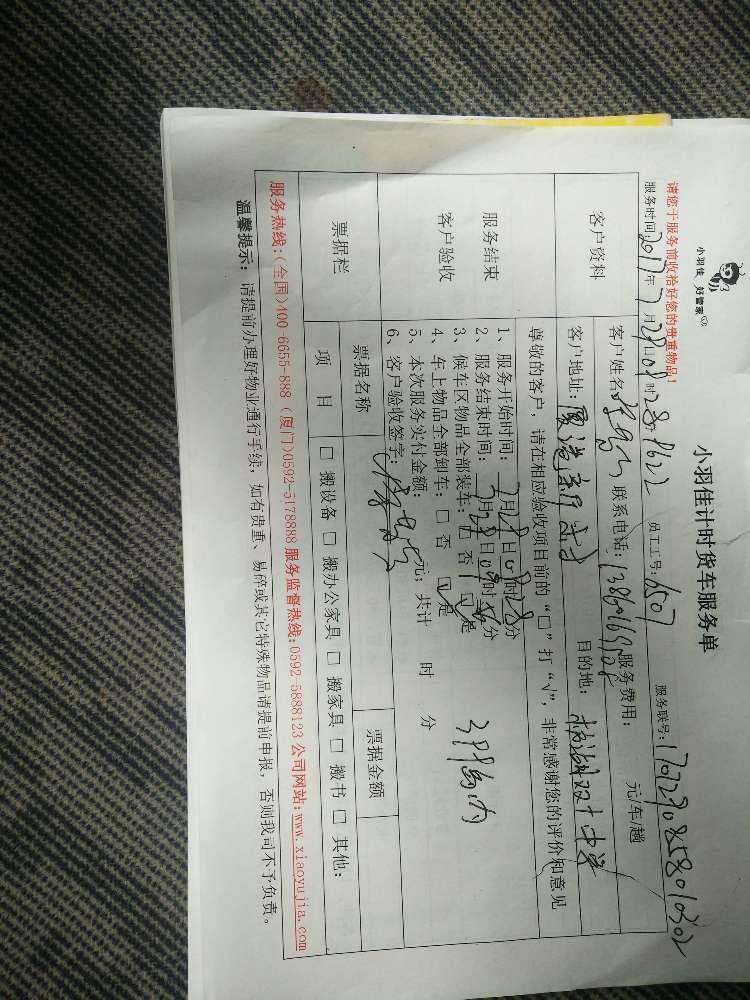 小羽佳 好管家
小羽佳计时货车服务单
请您于服务前收拾好您的贵重物品！
服务时间：2017年7月29日09时28 员工工号：6507 服务联号：
客户资料
客户姓名 联系电话： 服务费用： 元/车/趟
客户地址： 目的地： 双十中学
尊敬的客户，请在相应验收项目前的“□”打“√”，非常感谢您的评价和意见
服务结束
客户验收
1、服务开始时间：7月29日09时28分
2、服务结束时间：7月29日09时分
3、候车区物品全部装车：□ 否 □ 是
4、车上物品全部卸车：□ 否 □ 是
5、本次服务实付金额： 元；共计 时 分
6、客户验收签字：
票据栏
票据名称 票据金额
项 目 □ 搬设备 □ 搬办公家具 □ 搬家具 □ 搬书 □ 其他：
服务热线：（全国）400-6655-888（厦门）0592-5178888 服务监督热线：0592-5888123 公司网站：www.xiaoyujia.com
温馨提示：请提前办理好物业通行手续，如有贵重、易碎或其它特殊物品请提前申报，否则我司不予负责。